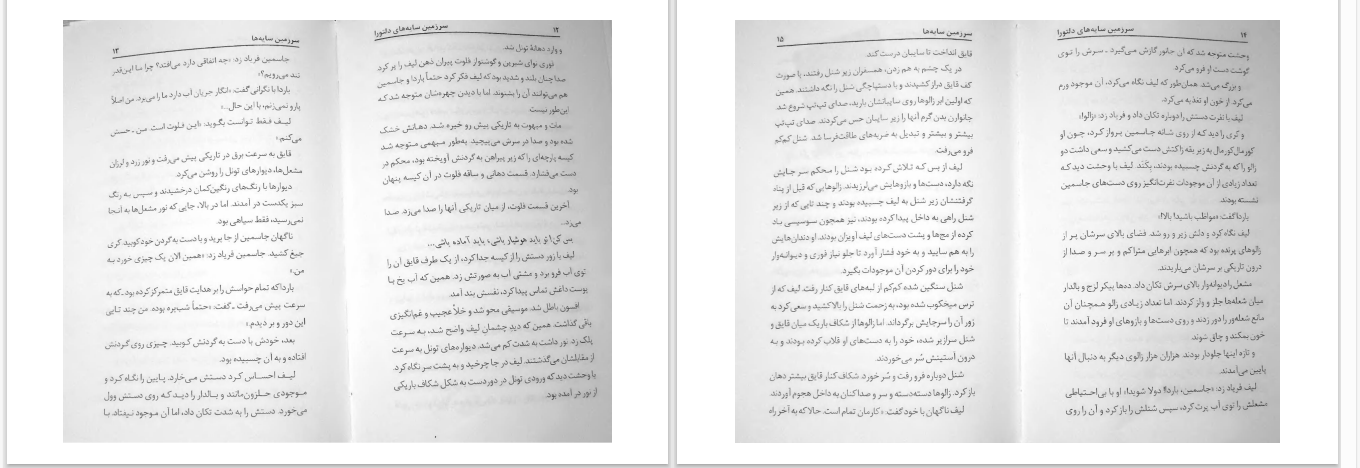 ۱۲
سرزمین سایه‌های دلتورا
و وارد دهانهٔ تونل شد.
نوری نوای شیرین و گوشنواز فلوت پیران ذهن لیف را پر کرد.
صدا چنان بلند و شدید بود که لیف فکر کرد حتماً باردا و جاسمین
هم می‌توانند آن را بشنوند. اما با دیدن چهره‌شان متوجه شد که
این‌طور نیست.
مات و مبهوت به تاریکی پیش رو خیره شد. دهانش خشک
شده بود و صدا در سرش می‌پیچید. به‌طور مبهمی متوجه شد
کیسه پارچه‌ای را که زیر پیراهن به گردنش آویخته بود، محکم در
دست می‌فشارد. قسمت دهانی و ساقه فلوت در آن کیسه پنهان
بود.
آخرین قسمت فلوت، از میان تاریکی آنها را صدا می‌زد. صدا
می‌زد...
باید هوشیار باشی، باید آماده باشی...
لیف با زور دستش را از کیسه جدا کرد، از یک طرف قایق آن را
توی آب فرو برد و مشتی آب به صورتش زد. همین که آب یخ با
پوست داغش تماس پیدا کرد، نفسش بند آمد.
افسون باطل شد. موسیقی محو شد و خلأ عجیب و غم‌انگیزی
باقی گذاشت. همین که دید چشمان لیف واضح شد، به سرعت
پلک زد. نور داشت به شدت کم می‌شد. دیواره‌های تونل به سرعت
از مقابلشان می‌گذشتند. لیف در جا چرخید و به پشت سر نگاه کرد.
با وحشت دید که ورودی تونل در دوردست به شکل شکاف باریکی
از نور در آمده بود.
سرزمین سایه‌ها
۱۳
جاسمین فریاد زد: «چه اتفاقی دارد می‌افتد؟ چرا ما این‌قدر
تند می‌رویم؟»
باردا با نگرانی گفت: «انگار جریان آب دارد ما را می‌برد. من اصلاً
پارو نمی‌زنم، با این حال...»
لیف فقط توانست بگوید: «این فلوت است. من ـ حسش
می‌کنم.»
قایق به سرعت برق در تاریکی پیش می‌رفت و نور زرد و لرزان
مشعل‌ها، دیوارهای تونل را روشن می‌کرد.
دیوارها با رنگ‌های رنگین‌کمان درخشیدند و سپس به رنگ
سبز یکدست در آمدند. اما در بالا، جایی که نور مشعل‌ها به آنجا
نمی‌رسید، فقط سیاهی بود.
ناگهان جاسمین از جا پرید و با دست به گردن خود کوبید. کری
جیغ کشید. جاسمین فریاد زد: «همین الان یک چیزی خورد به
من.»
باردا که تمام حواسش را بر هدایت قایق متمرکز کرده بود ـ که به
سرعت پیش می‌رفت ـ گفت: «حتماً شب‌پره بوده. من چند تایی
این دور و بر دیدم.»
بعد، خودش با دست به گردنش کوبید. چیزی روی گردنش
افتاده و به آن چسبیده بود.
لیف احساس کرد دستش می‌خارد. پایین را نگاه کرد و
موجودی حلزون‌مانند و بالدار را دید که روی دستش وول
می‌خورد. دستش را به شدت تکان داد، اما آن موجود نیفتاد. با
۱۴
سرزمین سایه‌های دلتورا
وحشت متوجه شد که آن جانور گازش می‌گیرد ـ سرش را توی
گوشت دست او فرو می‌کرد.
و بزرگ می‌شد. همان‌طور که لیف نگاه می‌کرد، آن موجود ورم
می‌کرد. از خون او تغذیه می‌کرد.
لیف با نفرت دستش را دوباره تکان داد و فریاد زد: «زالو!»
و کری را دید که از روی شانه جاسمین پرواز کرد، چون او
کورمال‌کورمال به زیر یقه ژاکتش دست می‌کشید و سعی داشت دو
زالو را که به گردنش چسبیده بودند، بکَند. لیف با وحشت دید که
تعداد زیادی از آن موجودات نفرت‌انگیز روی دست‌های جاسمین
نشسته بودند.
باردا گفت: «مواظب باشید! بالا!»
لیف نگاه کرد و دلش زیر و رو شد. فضای بالای سرشان پر از
زالوهای پرنده بود که همچون ابرهایی متراکم و پر سر و صدا از
درون تاریکی بر سرشان می‌باریدند.
مشعل را دیوانه‌وار بالای سرش تکان داد. ده‌ها پیکر لزج و بالدار
میان شعله‌ها جلز و ولز کردند. اما تعداد زیادی زالو همچنان آن
مانع شعله‌ور را دور زدند و روی دست‌ها و بازوهای او فرود آمدند تا
خون بمکند و چاق شوند.
و تازه اینها جلودار بودند. هزاران هزار زالوی دیگر به دنبال آنها
پایین می‌آمدند.
لیف فریاد زد: «جاسمین، باردا! دولا شوید!» او با بی‌احتیاطی
مشعلش را توی آب پرت کرد، سپس شنلش را باز کرد و آن را روی
سرزمین سایه‌ها
۱۵
قایق انداخت تا سایبان درست کند.
در یک چشم به هم زدن، همسفران زیر شنل رفتند، با صورت
کف قایق دراز کشیدند و با دستپاچگی شنل را نگه داشتند. همین
که اولین ابر زالوها روی سایبانشان بارید، صدای تپ‌تپ شروع شد.
جانوران بدن گرم آنها را زیر سایبان حس می‌کردند. صدای تپ‌تپ
بیشتر و بیشتر و تبدیل به ضربه‌های طاقت‌فرسا شد. شنل کم‌کم
فرو می‌رفت.
لیف از بس که تلاش کرده بود شنل را محکم سر جایش
نگه دارد، دست‌ها و بازوهایش می‌لرزیدند. زالوهایی که قبل از پناه
گرفتنشان زیر شنل به لیف چسبیده بودند و چند تایی که از زیر
شنل راهی به داخل پیدا کرده بودند، نیز همچون سوسیسی باد
کرده از مچ‌ها و پشت دست‌های لیف آویزان بودند. او دندان‌هایش
را به هم سایید و به خود فشار آورد تا جلو نیاز فوری و دیوانه‌وار
خود را برای دور کردن آن موجودات بگیرد.
شنل سنگین شده کم‌کم از لبه‌های قایق کنار رفت. لیف که از
ترس میخکوب شده بود، به زحمت شنل را بالا کشید و سعی کرد به
زور آن را سرجایش برگرداند. اما زالوها از شکاف باریک میان قایق و
شنل سرازیر شده، خود را به دست‌های او قلاب کرده بودند و به
درون آستینش سُر می‌خوردند.
شنل دوباره فرو رفت و سُر خورد. شکاف کنار قایق بیشتر دهان
باز کرد. زالوها دسته‌دسته و سر و صداکنان به داخل هجوم آوردند.
لیف ناگهان با خود گفت: «کارمان تمام است. حالا که به آخر راه